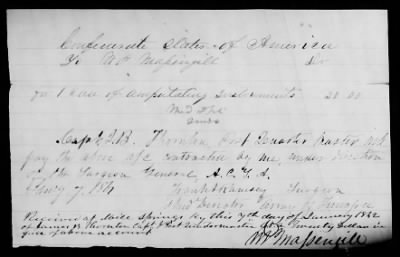 Confederate States of America
To W P Massengill Dr
For 1 Case of amputating instruments 20.00
Capt J.B. Thornton Post Quarter Master will
pay the above a/c contracted by me under direction
of the Surgeon General A.C.S.A.
Jany 7 186 Frank Ramsey Surgeon
Med Director Army of
Received at Mill Springs Ky this 7th day of January 1862
of James B Thornton Capt & Post Quartermaster Twenty Dollars in
full of above account
W P Massengill